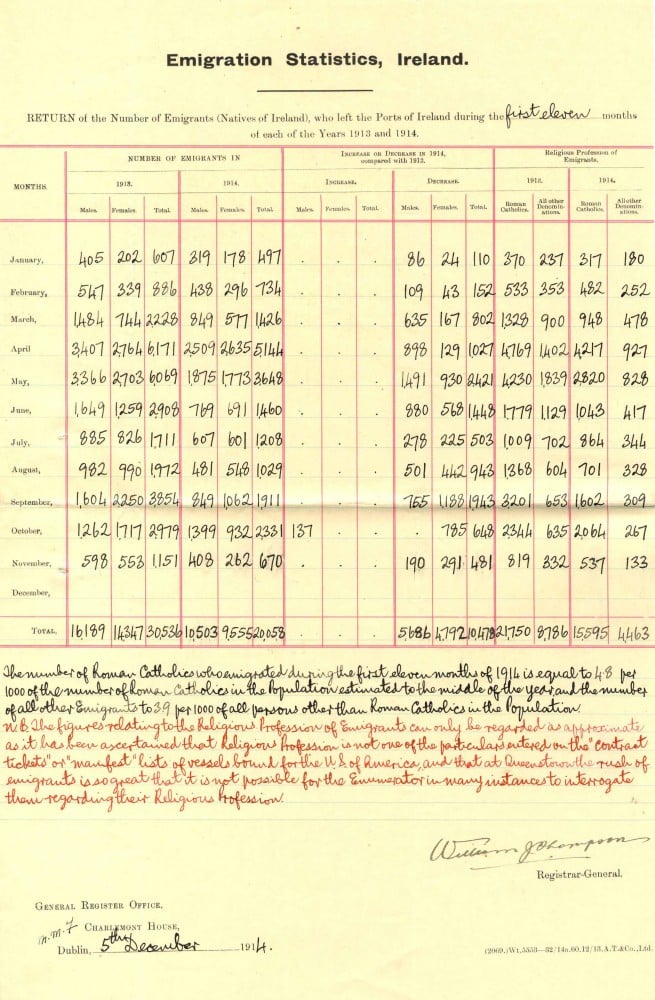 Emigration Statistics, Ireland.
RETURN of the Number of Emigrants (Natives of Ireland), who left the Ports of Ireland during the first eleven months
of each of the Years 1913 and 1914.
MONTHS. NUMBER OF EMIGRANTS IN INCREASE OR DECREASE IN 1914, compared with 1913. Religious Profession of Emigrants.
1913. 1914. INCREASE. DECREASE. 1913. 1914.
Males. Females. Total. Males. Females. Total. Males. Females. Total. Males. Females. Total. Roman Catholics. All other Denominations. Roman Catholics. All other Denominations.
January, 405 202 607 319 178 497 . . . 86 24 110 370 237 317 180
February, 547 339 886 438 296 734 . . . 109 43 152 533 353 482 252
March, 1,484 744 2228 849 577 1,426 . . . 635 167 802 1,328 900 948 478
April 3,407 2,764 6,171 2,509 2,635 5,144 . . . 898 129 1,027 4769 1,402 4,217 927
May, 3,366 2,703 6,069 1,875 1,773 3,648 . . . 1,491 930 2,421 4,230 1,839 2,820 828
June, 1,649 1,259 2,908 769 691 1,460 . . . 880 568 1,448 1,779 1,129 1,043 417
July, 885 826 1,711 607 601 1,208 . . . 278 225 503 1,009 702 864 344
August, 982 990 1,972 481 548 1,029 . . . 501 442 943 1,368 604 701 328
September, 1,604 2,250 3,854 849 1,062 1,911 . . . 755 1,188 1,943 3,201 653 1,602 309
October, 1,262 1,717 2,979 1,399 932 2,331 137 . . . 785 648 2,344 635 2,064 267
November, 598 553 1,151 408 262 670 190 291 481 819 332 537 133
December,
TOTAL, 16,189 14,347 30,536 10,503 9,555 20,058 5,686 4,792 10,478 21,750 8,786 15,595 4,463
The number of Roman Catholics who emigrated during the first eleven months of 1914 is equal to 4.8 per
1000 of the number of Roman Catholics in the Population estimated to the middle of the year and the number
of all other Emigrants to 3.9 per 1000 of all persons other than Roman Catholics in the Population.
N.B. The figures relating to the Religious Profession of Emigrants can only be regarded as approximate
as it has been ascertained that Religious Profession is not one of the particulars entered on the "contract
tickets" or "manifest" lists of vessels bound for the U.S. of America, and that at Queenstown the rush of
emigrants is so great that it is not possible for the Enumerator in many instances to interrogate
them regarding their Religious Profession.
William J Thompson
Registrar-General.
GENERAL REGISTER OFFICE,
CHARLEMONT HOUSE,
Dublin, 5th December 1914.
(2069.)Wt.5553—82/14a.60.12/13.A.T.&Co.,Ltd.